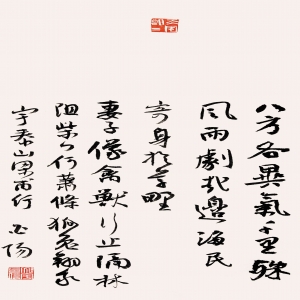 八方各異氣千里殊
風雨劇哉邊海民
寄身於草野
妻子像禽獸行止隔林
阻柴門何蕭條狐兔翔我
宇泰山梁甫行